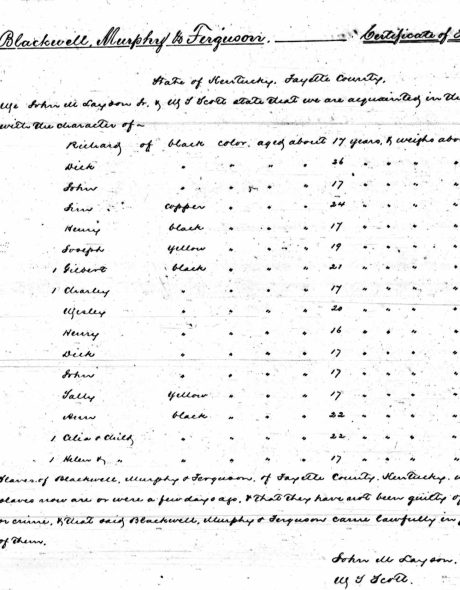 Blackwell, Murphy & Ferguson. Certificate of
State of Kentucky. Fayette County.
We John M Layson Jr. & W T Scott state that we are acquainted in the
with the character of—
Richard of black color. aged about 17 years, & weighs about
Dick " " " 26 " " "
John " " " 17 " " "
copper " " 24 " " "
Henry black " " 17 " " "
Joseph yellow " " 19 " " "
1 Gilbert black " " 21 " " "
1 Charley " " " 17 " " "
Wesley " " " 20 " " "
Henry " " " 16 " " "
Dick " " " 17 " " "
John " " " 17 " " "
Sally yellow " " 17 " " "
Ann black " " 22 " " "
1 Celia & Child " " " 22 " " "
1 Helen & " " " " 17 " " "
Slaves of Blackwell, Murphy & Ferguson, of Fayette County, Kentucky.
slaves now are or were a few days ago, & that they have not been guilty of
or crime, & that said Blackwell, Murphy & Ferguson came lawfully in
of them.
John M Layson.
W T Scott.